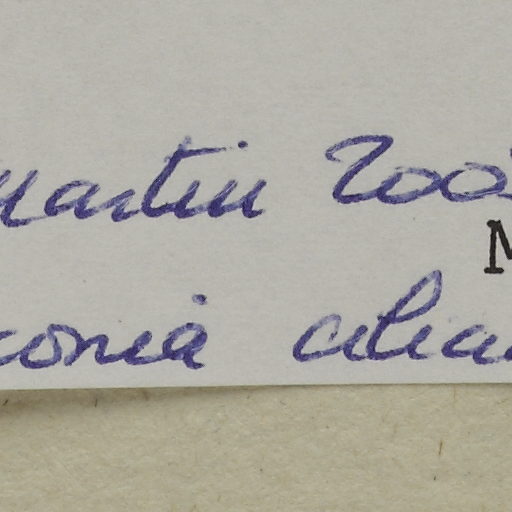 Martin 200
M
conia cilia